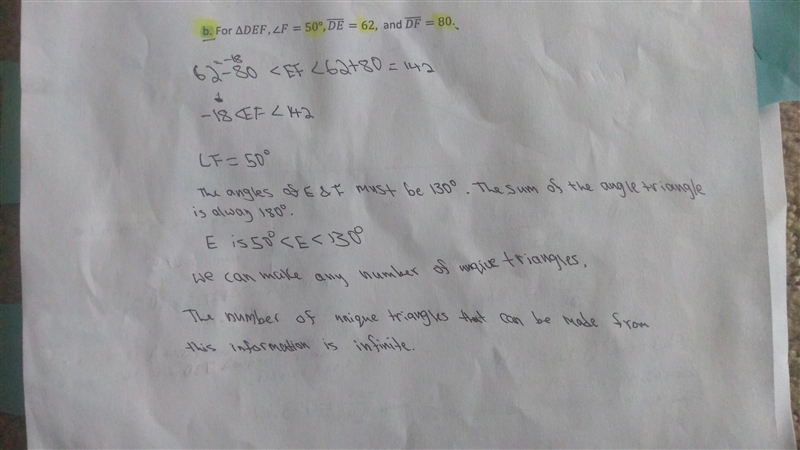 b. For ΔDEF, ∠F = 50°, DE = 62, and DF = 80.
= -18
62 - 80 < EF < 62+80 = 142
-18 < EF < 142
∠F = 50°
The angles of E & F must be 130°. The sum of the angle triangle
is alway 180°.
E is 50° < E < 130°
we can make any number of unqiue triangles.
The number of unique triangles that can be made from
this information is infinite.